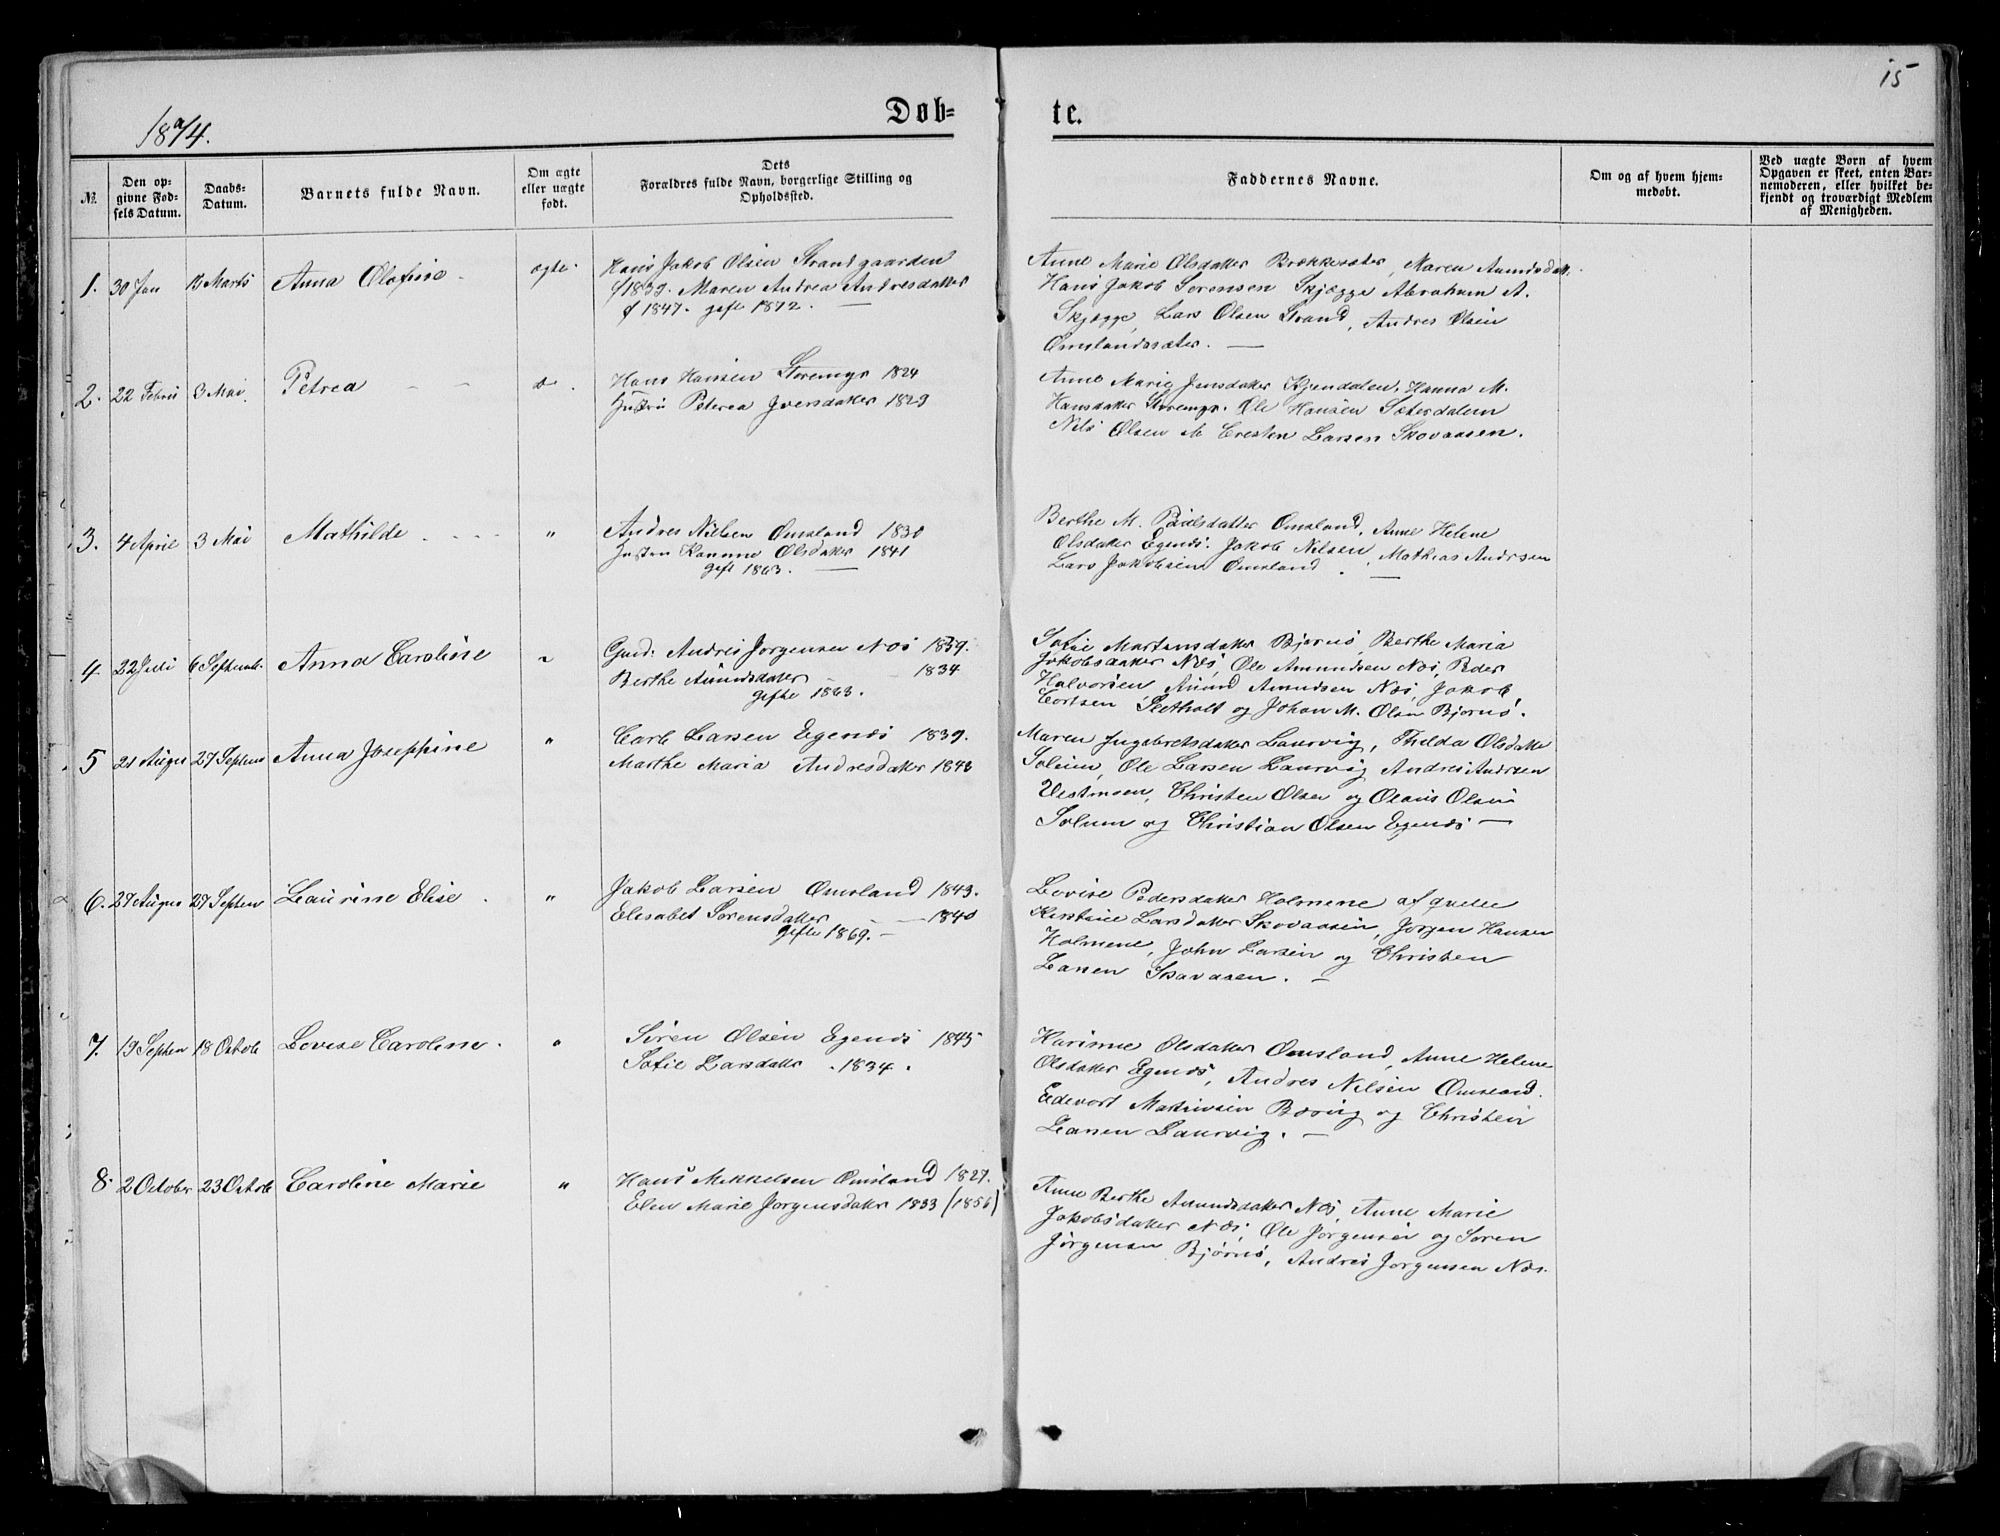 15
1874.
Døb-
te.
№
Den op-
givne Fød-
sels Datum.
Daabs-
Datum.
Barnets fulde Navn.
Om ægte
eller uægte
født.
Dets
Forældres fulde Navn, borgerlige Stilling og
Opholdssted.
Faddernes Navne.
Om og af hvem hjem-
medøbt.
Ved uægte Børn af hvem
Opgaven er skeet, enten Bar-
nemoderen, eller hvilket be-
kjendt og troværdigt Medlem
af Menigheden.
1. 30 Jan Marts Anna Olafine ægte
Hans Jakob Olsen Strandgaarden
f 1839. Maren Andrea Andresdatter
f 1847. gift 1872.
Anne Marie Olsdatter Brækkesæter, Maren Amundsdatt.
Hans Jakob Sørensen Skjægge Abraham A.
Skjægge, Lars Olsen Strand, Andres Olsen
Omslandssæter.
2. 22 Febru 3 Mai Petrea do.
Hans Hansen Storemyr 1824
Hustru Peterea Iversdatter 1829
Anne Marie Jensdatter Kjendalen, Hanna M.
Hansdatter Storemyr. Ole Hansen Sæterdalem
Nils Olsen M Cresten Larsen Skovaasen.
3. 4 April 3 Mai Mathilde "
Andres Nielsen Omsland 1830
Hustru Hanne Olsdatter 1841
gift 1863.
Berthe M. Poulsdatter Omsland, Anne Helene
Olsdatter Egenæs. Jakob Nilsen, Mathias Andrsen
Lars Jakobsen Omsland.
4. 22 Juli 6 Septemb. Anna Caroline "
Gmd. Andres Jørgensen Næs 1839.
Berthe Amundsdatter 1834
gifte 1863.
Sofie Martensdatter Bjørnø, Berthe Maria
Jakobsdatter Næs, Ole Amundsen Næs, Peder
Halvorsen, Amund Amundsen Næs, Jakob
Cortsen Sletholt og Johan M. Olsen Bjørnø.
5 21 Augu 27 Septem Anna Josephine "
Carl Larsen Egenæs 1839.
Marthe Maria Andresdatter 1848
Maren Ingebretsdatter Laurvig, Thilda Olsdatte
Solum, Ole Larsen Laurvig Andres Andrsen
Vestmoen, Christen Olsen og Olaus Olsen
Solum og Christian Olsen Egenæs
6. 27 Augus 27 Septem Laurine Elise "
Jakob Larsen Omsland 1843.
Elisabet Sørensdatter 1840
gifte 1869.
Lovise Pedersdatter Holmene
Kirstine Larsdatter Skovaasen, Jørgen Hansen
Holmene, John Larsen og Christen
Larsen Skovaasen.
7. 19 Septem 18 Octob Lovise Caroline "
Søren Olsen Egenæs 1845
Sofie Larsdatter 1834.
Olsdatter Omsland, Anne Helene
Olsdatter Egenæs, Andres Nilsen Omsland.
Edevart Mathisen Bøving og Christen
Larsen Laurvig.
8. 2 October 23 Octob Caroline Marie "
Hans Mikkelsen Omsland 1827.
Elen Marie Jørgensdatter 1833 (1856)
Anne Berthe Amundsdatter Næs, Anne Marie
Jakobsdatter Næs, Ole Jørgensen og Søren
Jørgensen Bjørnø, Andres Jørgensen Næs.